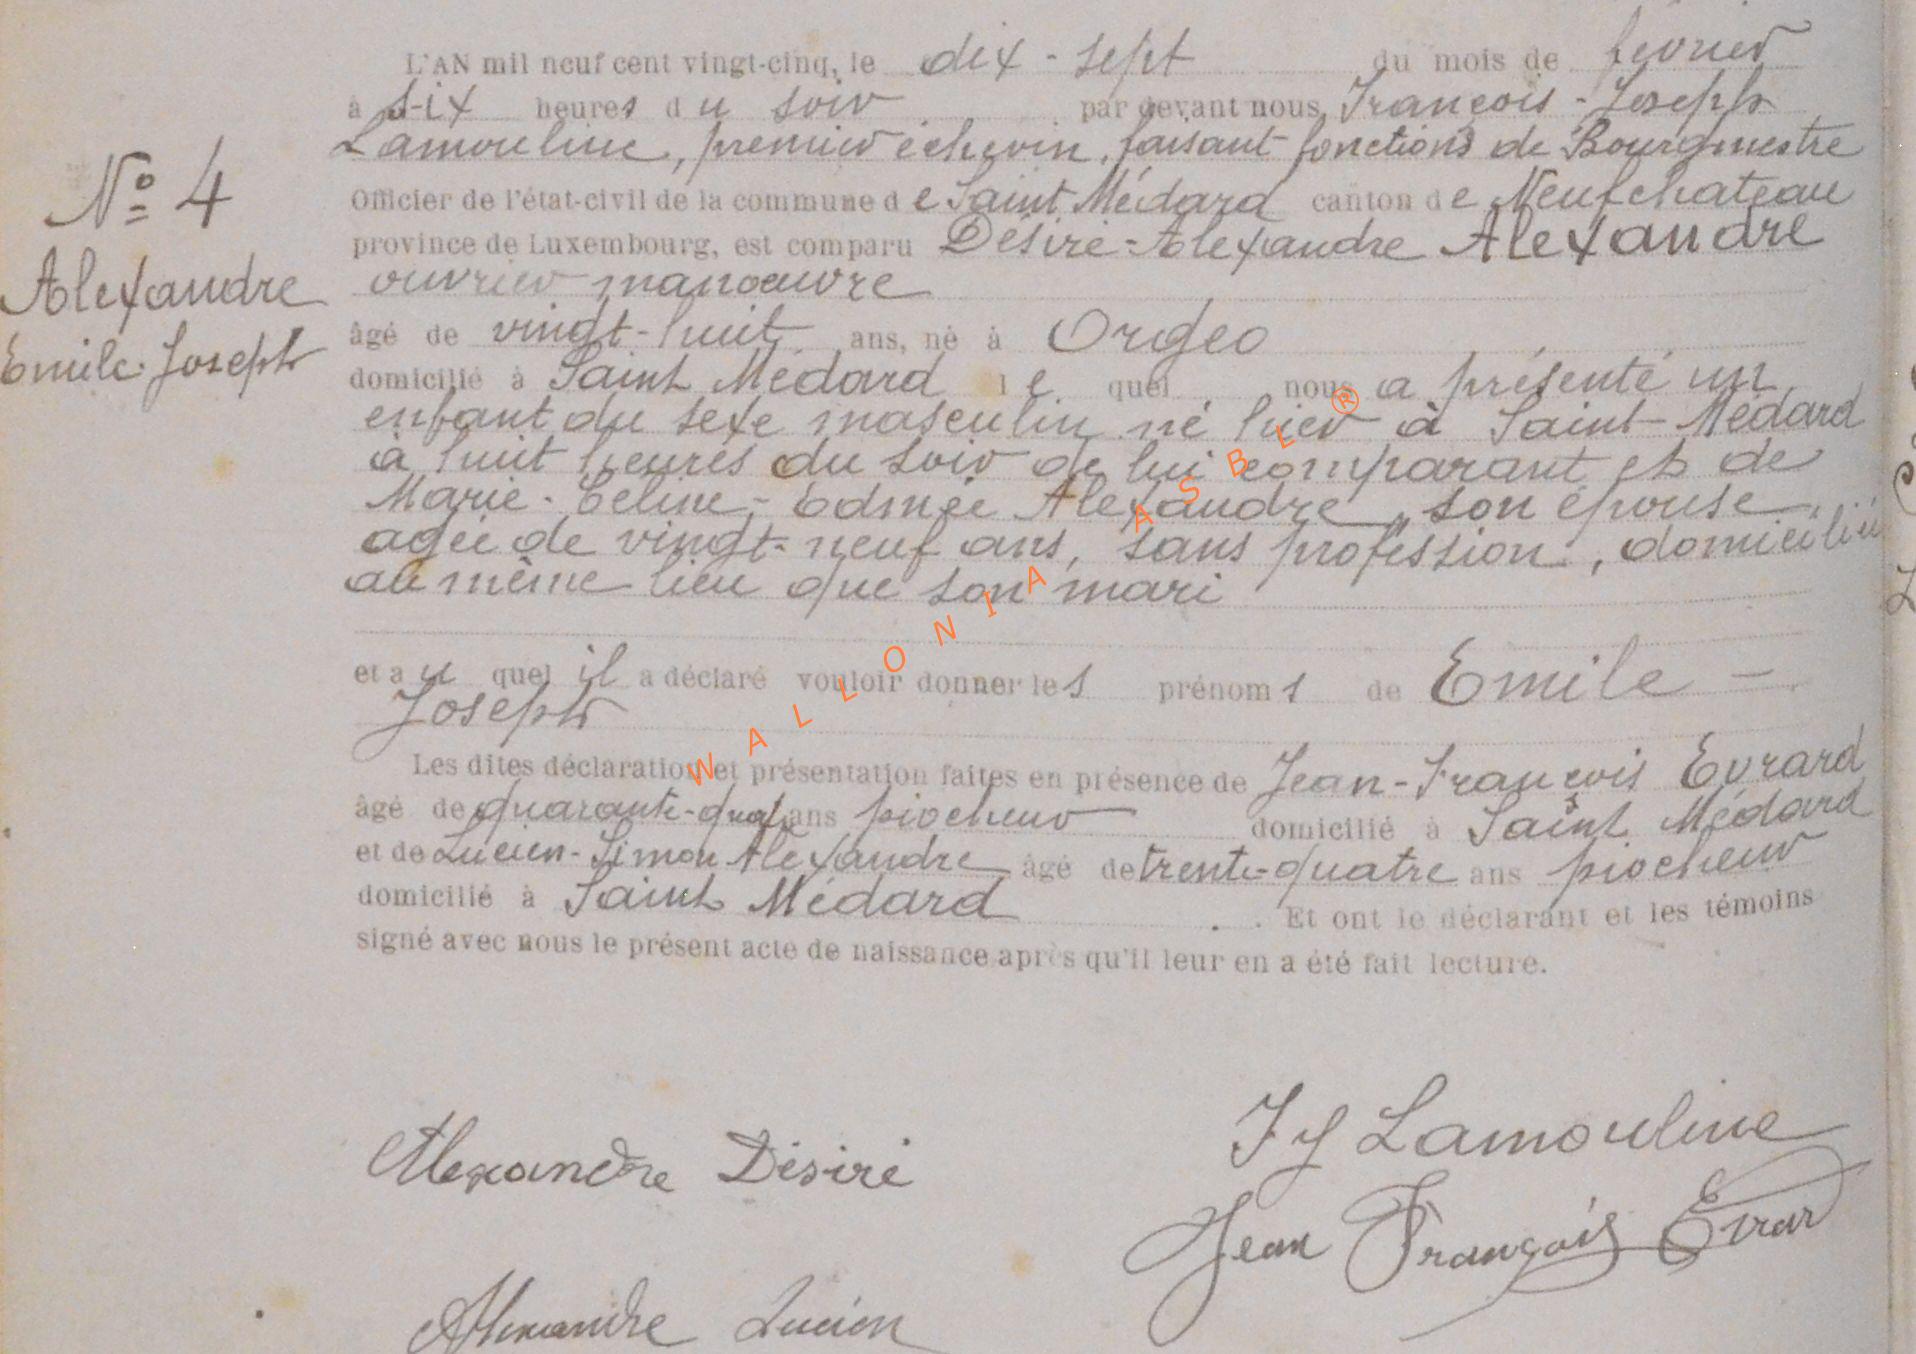 L'AN mil neuf cent vingt-cinq, le dix-sept du mois de février
à six heures du soir par devant nous, François-Joseph
Lamouline, premier échevin, faisant fonctions de Bourgmestre
Officier de l'état-civil de la commune de Saint Médard canton de Neufchateau
province de Luxembourg, est comparu Désiré-Alexandre Alexandre
ouvrier manoeuvre
âgé de vingt-huit ans, né à Orgeo
domicilié à Saint Médard lequel nous a présenté un
enfant du sexe masculin né hier à Saint-Médard
à huit heures du soir de lui comparant et de
Marie-Céline-Edmée Alexandre, son épouse,
agée de vingt-neuf ans, sans profession, domiciliée
au même lieu que son mari
et auquel il a déclaré vouloir donner les prénoms de Emile-
Joseph
Les dites déclaration et présentation faites en présence de Jean-François Evrard
âgé de quarante-quat ans piocheur domicilié à Saint Médard
et de Lucien-Simon Alexandre âgé de trente-quatre ans piocheur
domicilié à Saint Médard. Et ont le déclarant et les témoins
signé avec nous le présent acte de naissance après qu'il leur en a été fait lecture.
N° 4
Alexandre
Emile-Joseph
FJ Lamouline
Alexandre Désiré
Jean François Evrar
Alexandre Lucien
WALLONIA ASBL ®